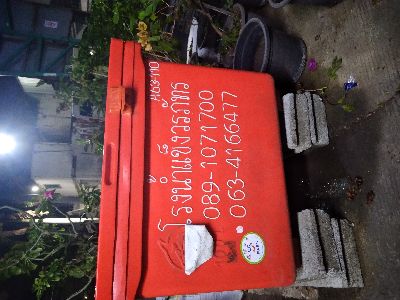 A63-110
โรงน้ำแข็งวรภัทร
089-1071700
063-4166477